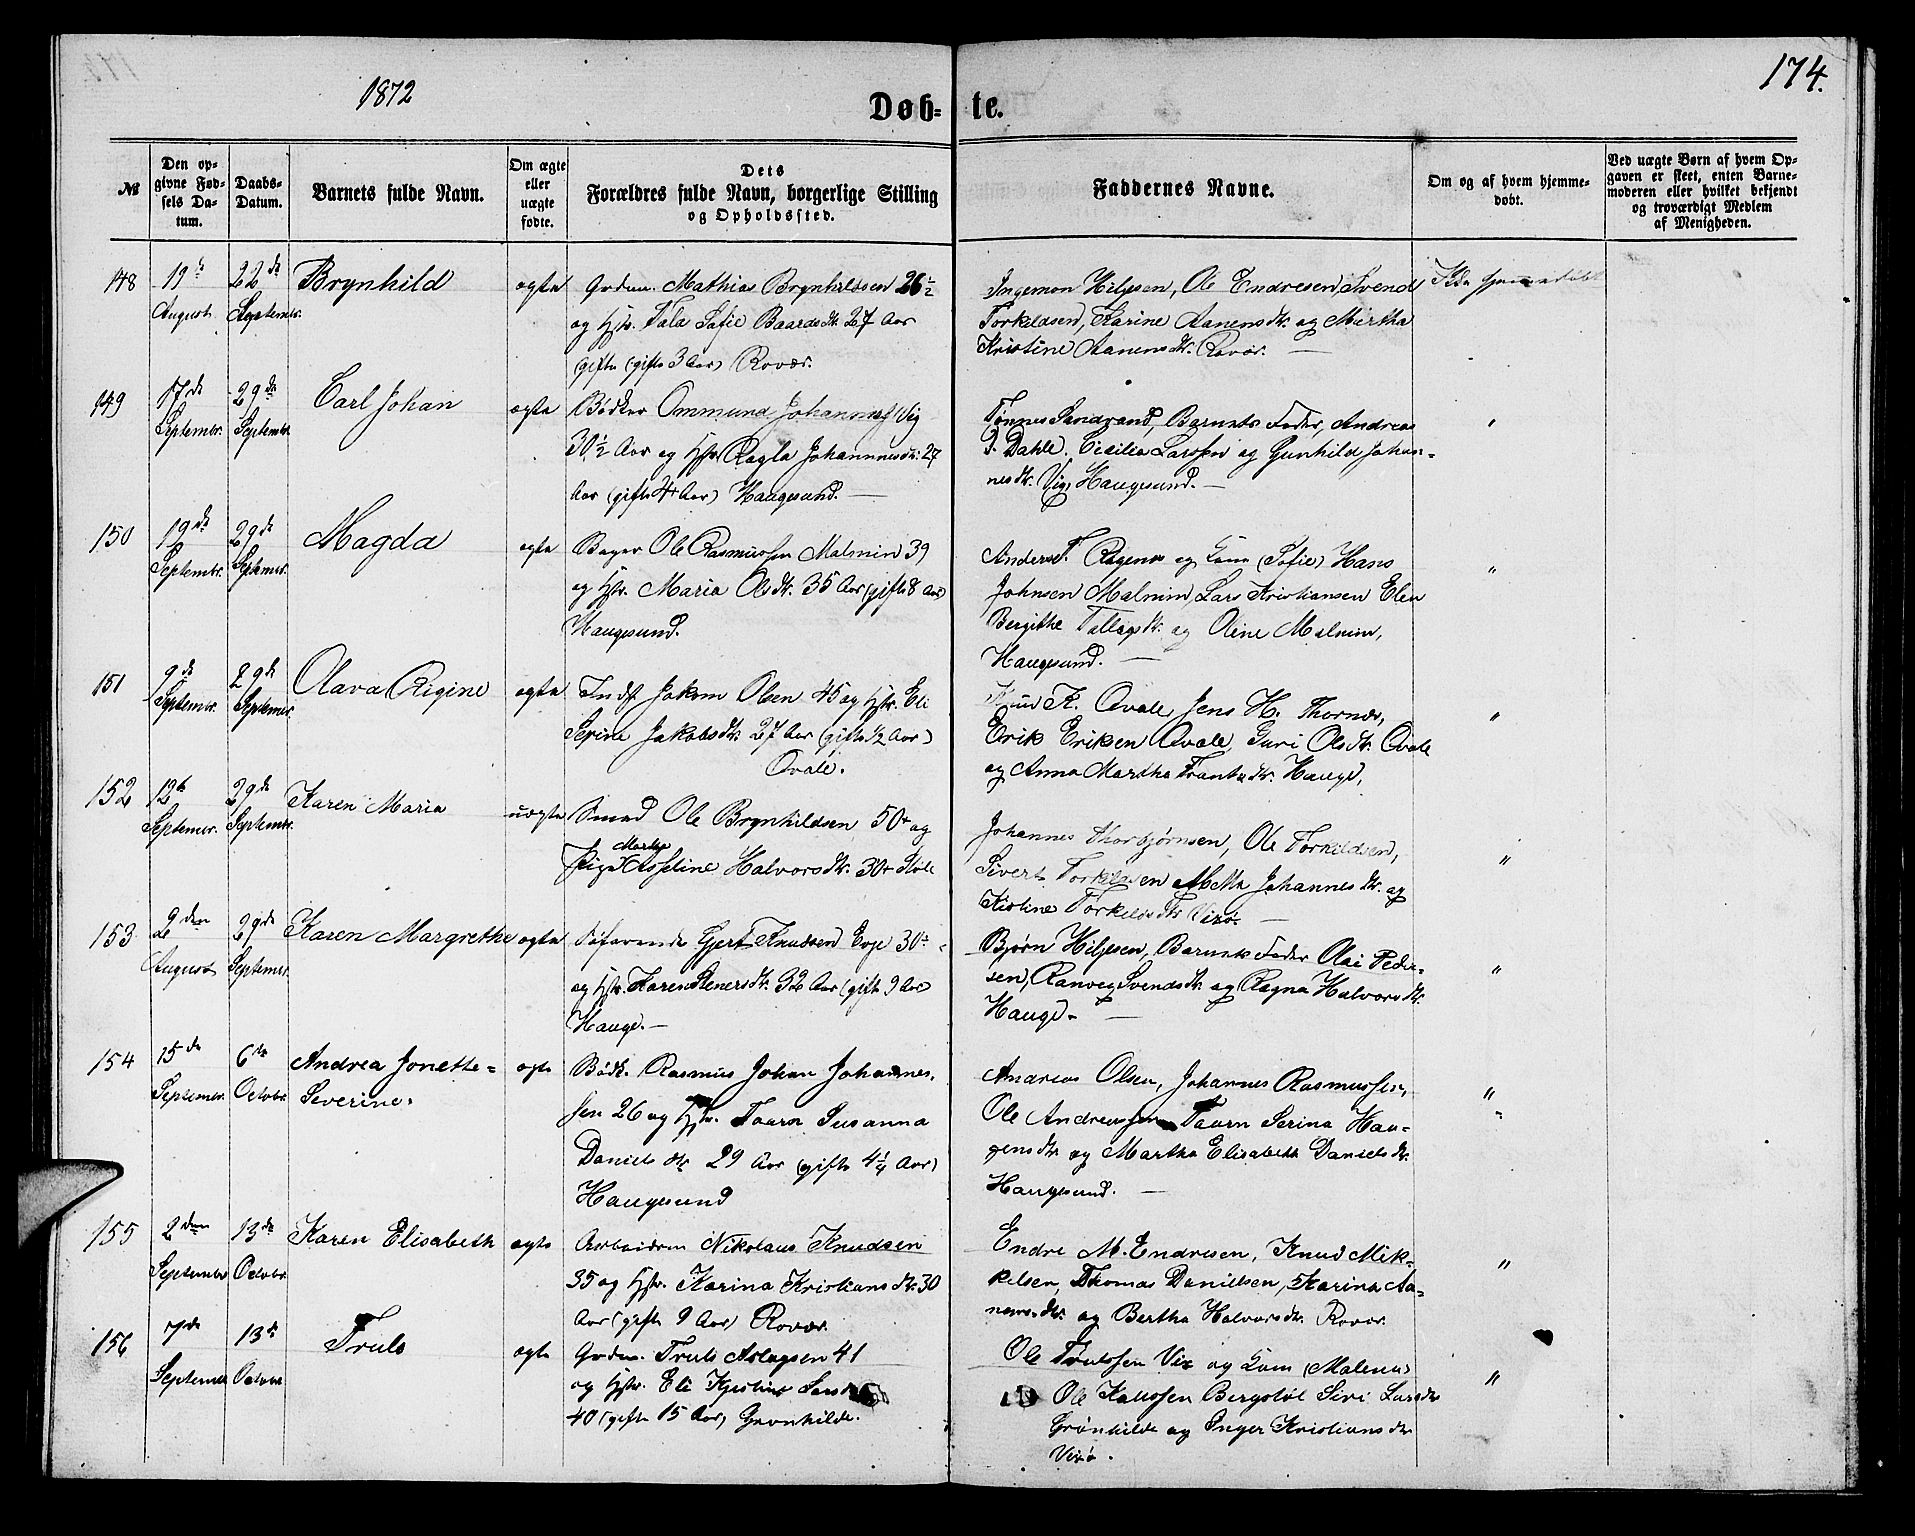 1872
174.
Døb- te.
№
Den opgivne Fødsels Datum.
Daabs-Datum.
Barnets fulde Navn.
Om ægte eller uægte fødte.
Dets Forældres fulde Navn, borgerlige Stilling og Opholdssted.
Faddernes Navne.
Om og af hvem hjemmedøbt.
Ved uægte Børn af hvem Opgaven er skeet, enten Barnemoderen eller hvilket bekjendt og troværdigt Medlem af Menigheden.
148 19de August 22de Septembr. Brynhild ægte
Grdm. Mathias Brynhildsen 26½
og Hstr. Tala Sofie Baardsdtr. 27 Aar
gifte (gifte 3 Aar) Rovær.
Ingemon Hiljesen, Ole Endresen, Svend
Torkildsen, Karine Aanensdtr. og Martha
Kristine Aanensdtr. Rovær. —
149 17de Septembr. 29de Septembr. Carl Johan ægte
Bødker Ommund Johannes. Vig
30½ Aar og Hstr. Ragla Johannnesdtr. 27
Aar (gifte 4 Aar) Haugesund. —
Tønnes Sandzand, Barnets Fader, Andreas
J. Dahle, Cicilia Larssen og Gunhild Johan-
nesdtr. Vig, Haugesund. —
"
150 19de Septembr. 29de Septembr. Magda ægte
Bager Ole Rasmussen Malmin 39
og Hstr. Maria Olsdtr. 35 Aar (gifte 8 Aar)
Haugesund.
Anders T. Røgenes og Kone (Sofie) Hans
Johnsen Malmin, Lars Kristiansen Elen
Bergithe Tallagsdtr. og Oline Malmin,
Haugesund. —
"
151 9de Septembr. 29de Septembr. Olava Rigine ægte
Indst Jakom Olsen 45 og Hstr. Eli
Serine Jakobsdtr. 27 Aar (gifte ½ Aar)
Qvale.
Knud K. Qvale, Jens H. Thornæs,
Erik Eriksen Qvale, Guri Olsdtr. Qvale
og Anna Martha Frantsdtr. Hauge,
"
152 12te Septembr. 29de Septembr. Karen Maria uægte
Smed Ole Brynhildsen 50 og
Pige Marthe Asseline Halvorsdtr. 30
Johannes Thorbjørnsen, Ole Torkildsen,
Sivert Torkildsen Metta Johannesdtr. og
Kistine Torkildsdtr. Vixø. —
"
153. 2den August 29de Septembr. Karen Margrethe ægte
Søfarende Gjert Knudsen Eoje 30
og Hstr. Karen Stenersdtr. 32 Aar (gift 9 Aar
Hauge. —
Bjørn Hiljesen, Barnets Fader Olai Peder-
sen, Ranveg Svendsdtr. og Ragna Halvorsdtr.
Hauge. —
"
154 15de Septembr. 6te Octobr. Andrea Jonette-
Severine. ægte
Bødk. Rasmus Johan Johannes-
sen 26 og Hstr. Taarn Susanna
Daniels dtr 29 Aar (gifte 4¼ Aar)
Haugesund
Andreas Olsen, Johannes Rasmussen,
Ole Andreassen Taarn Serina Hau-
gensdtr. og Martha Elisabeth Danielsdtr.
Haugesund. —
"
155 2den Septembr 13de Octobr. Karen Elisabeth ægte
Arbeidsm Nikolaus Knudsen
35 og Hstr. Karina Kristiansdtr. 30
Aar (gifte 9 Aar) Rovær.
Endre M. Endresen, Knud Mik-
kelsen, Thomas Danielsen, Karina Aa-
nensdtr. og Bertha Halvorsdtr. Rovær.
"
156 7de Septembr 13de Octobr Truls ægte
Grdm. Truls Aslagsen 41
og Hstr. Eli Kjestine
40 (gifte 15 Aar) Grønhilde.
Ole Trulssen Vix og Kone (Malena)
Ole Bergstøl Siri Larsdtr
Grønhilde og Inger Kristiansdtr
Vixø.
"